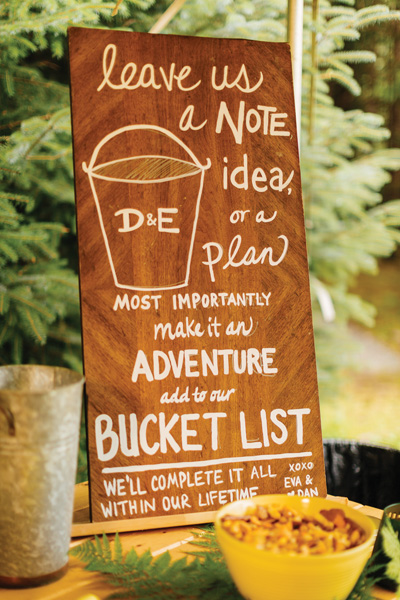 leave us
a NOTE,
idea,
D&E
or a
plan
MOST IMPORTANTLY
make it an
ADVENTURE
add to our
BUCKET LIST
WE'LL COMPLETE IT ALL
WITHIN OUR LIFETIME
XOXO
EVA &
DAN